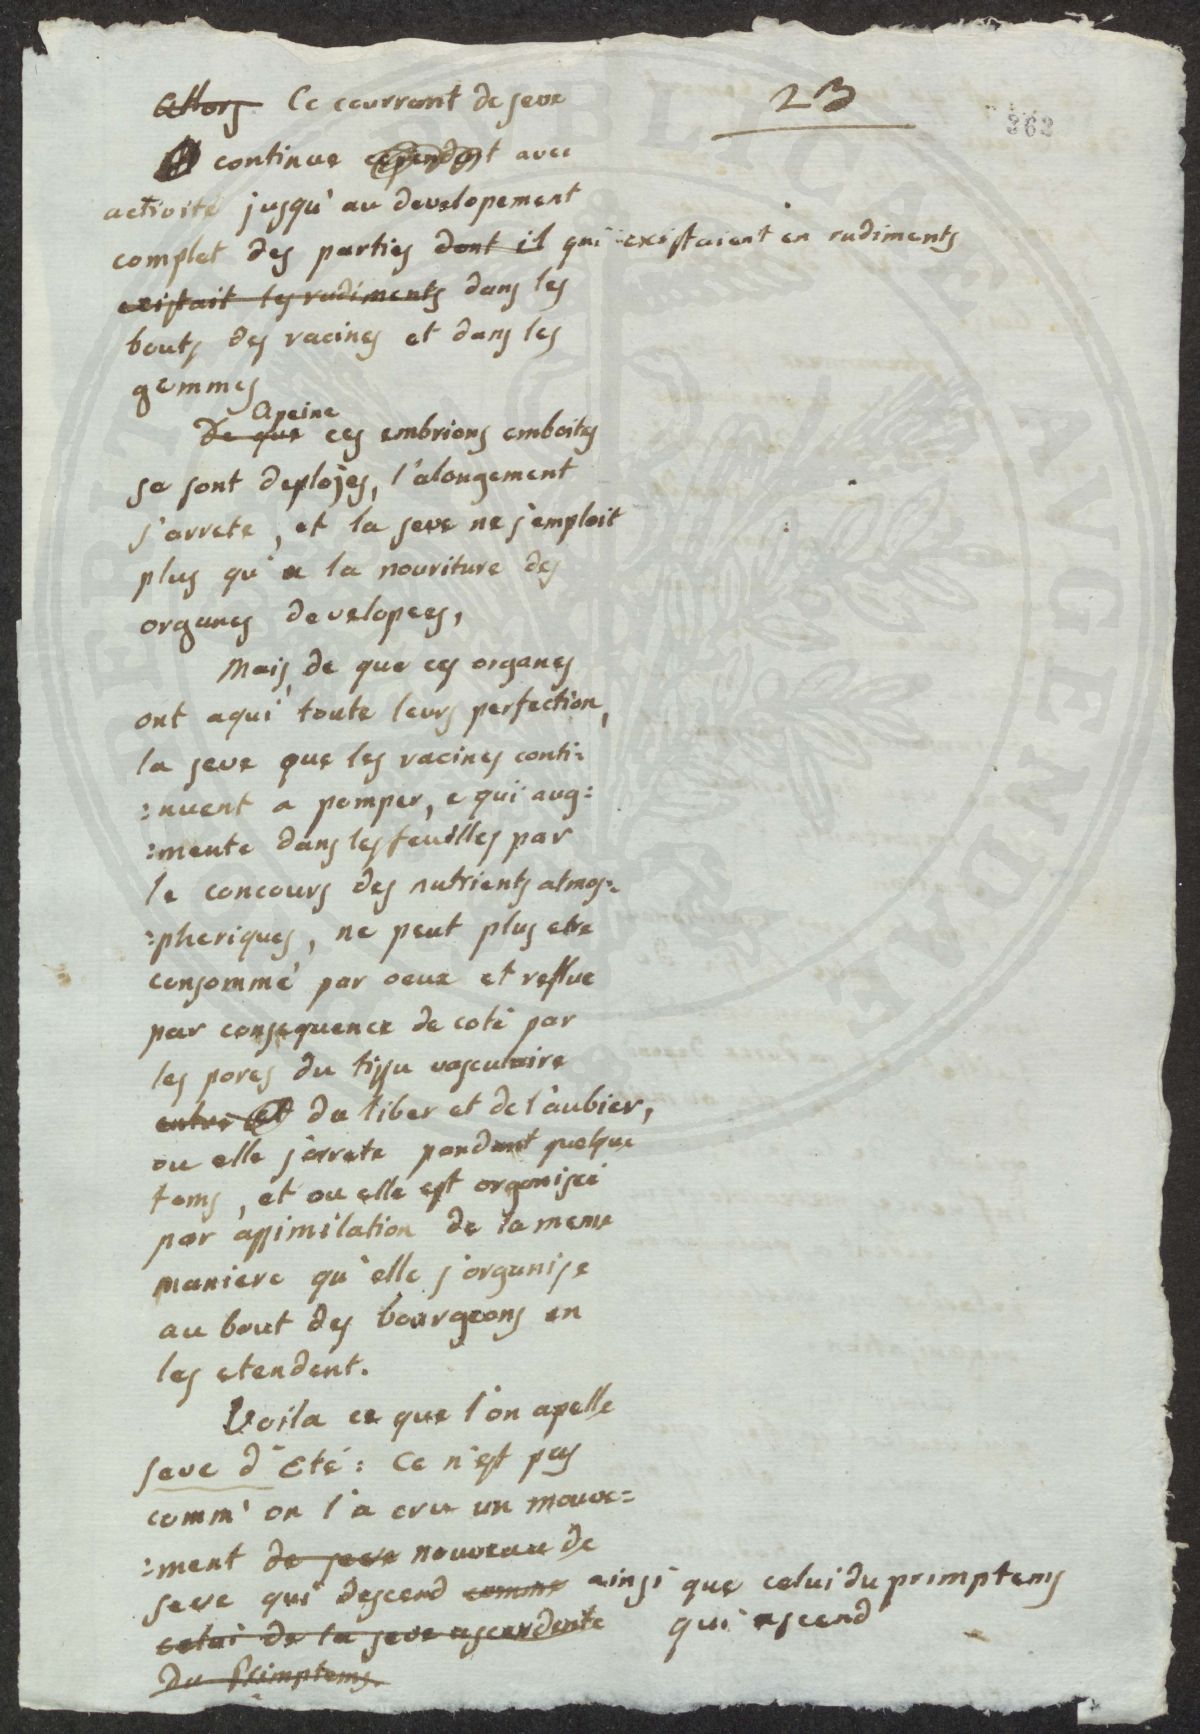 23
362
Allors Ce courrant de seve
continue cependant avec
activité jusqu'au developement
complet des parties dont il qui existaient en rudiments
existait les rudiments dans les
bouts des racines et dans les
gemmes
Apeine
De que ces embrions emboites
se sont deplojes, l'alongement
s'arrete, et la seve ne s'emploit
plus qu'a la nouriture des
organes developees,
Mais, de que ces organes
ont aqui toute leurs perfection,
la seve que les racines conti=
=nuent a pomper, e qui aug=
=mente dans les feuilles par
le concours des nutrients atmos=
=pheriques, ne peut plus etre
consommé par oeux et reflue
par consequence de coté par
les pores du tissu vasculaire
entre et du liber et de l'aubier,
ou elle s'arrete pendant quelque
tems, et ou elle est organiseé
par assimilation de la meme
maniere qu'elle s'organise
au bout des bourgeons en
les etendent.
Voila ce que l'on apelle
seve d'Eté: Ce n'est pas
comm' on l'a cru un mouve=
=ment de seve nouveau de
seve qui descend comme ainsi que celui du primptems
celui de la seve ascendente qui ascend
Du Primptems.
PUBLICAE
AVGENDAE